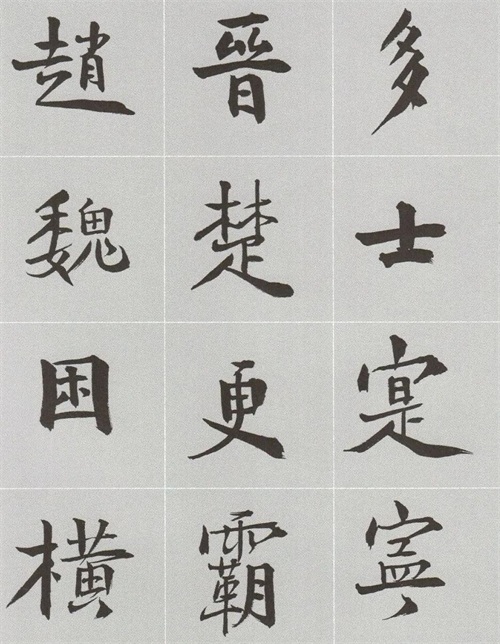 多士寔寧
晉楚更霸
趙魏困橫